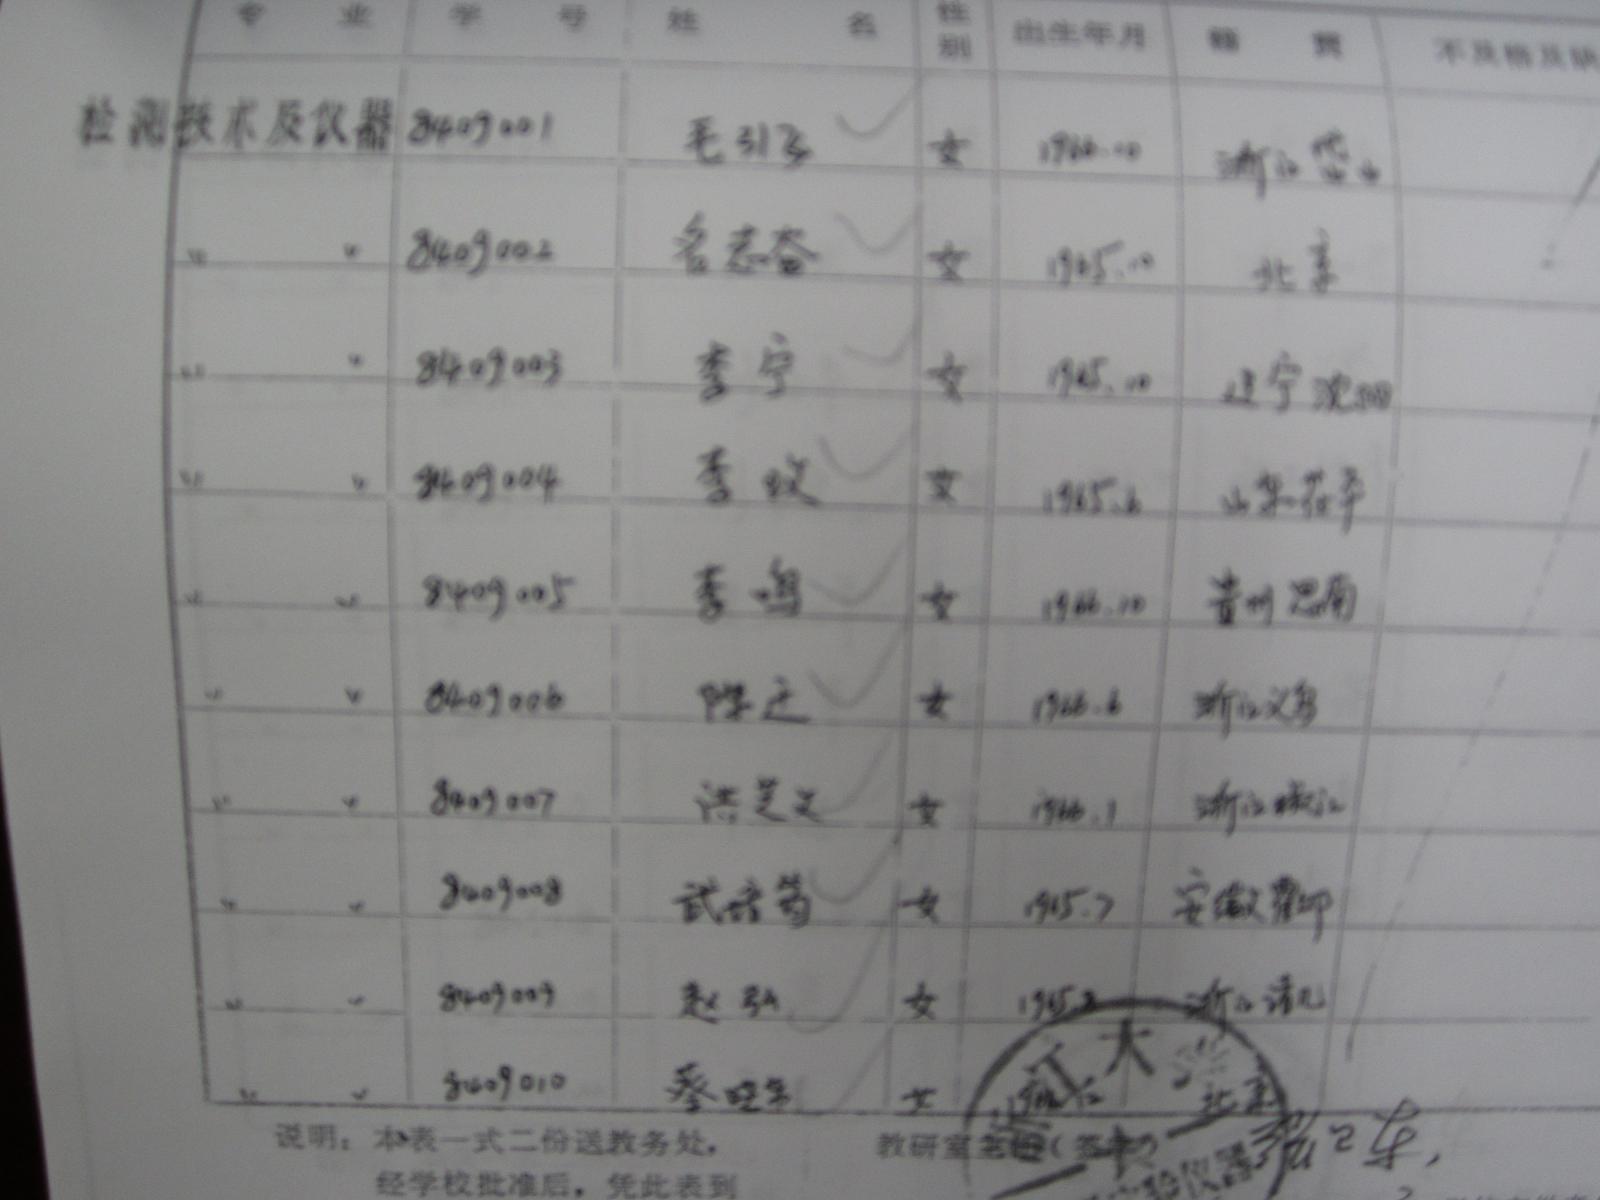 专 业 学 号 姓 名 性别 出生年月 籍 贯 不及格及缺
检测技术及仪器 8409001 毛引 女 1966.10 浙江岱山
〃 〃 8409002 志 女 1965.10 北京
〃 〃 8409003 李宁 女 1965.10 辽宁沈阳
〃 〃 8409004 李 女 1965.6 山东茌平
〃 〃 8409005 李鸣 女 1966.10 贵州思南
〃 〃 8409006 陈 女 1966.6 浙江义乌
〃 〃 8409007 洪芝 女 1966.1 浙江
〃 〃 8409008 武 女 1965.7 安徽霍邱
〃 〃 8409009 赵弘 女 1965.2 浙江诸几
〃 〃 8409010 蔡 女 北京
说明：本表一式二份送教务处，
教研室主任（签字）
经学校批准后，凭此表到
江大